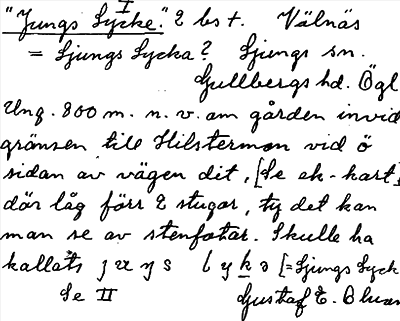 I
"Jungs Lycke." 2 bst. Välnäs
= Ljungs Lycka? Ljungs sn.
Gullbergs hd. Ögl
Ung. 800 m. n. v. om gården invid
gränsen till Hilstermon vid ö
sidan av vägen dit, [Se ek-kart]
där låg förr 2 stugor, ty det kan
man se av stenfötar. Skulle ha
kallats [=Ljungs Lyck
Se II Gustaf E.